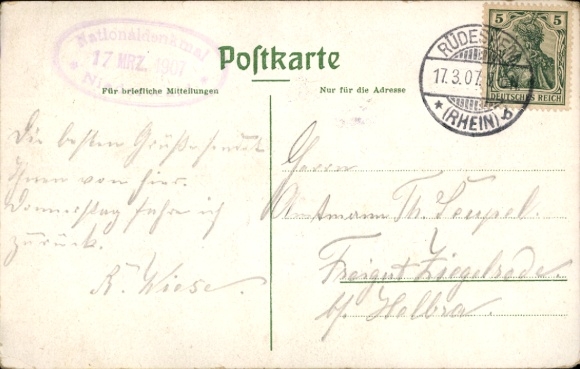 Nationaldenkmal
17 MRZ. 1907
Postkarte
Für briefliche Mitteilungen
Nur für die Adresse
RÜDESHEIM
17.3.07.
* (RHEIN) b
5 5
DEUTSCHES REICH
Die besten Grüße sendet
Ihnen von hier.
Donnerstag fahre ich
zurück.
K. Wiese.
Herrn
Amtmann Th.
Freigut Ziegelrode
bf. Helbra.